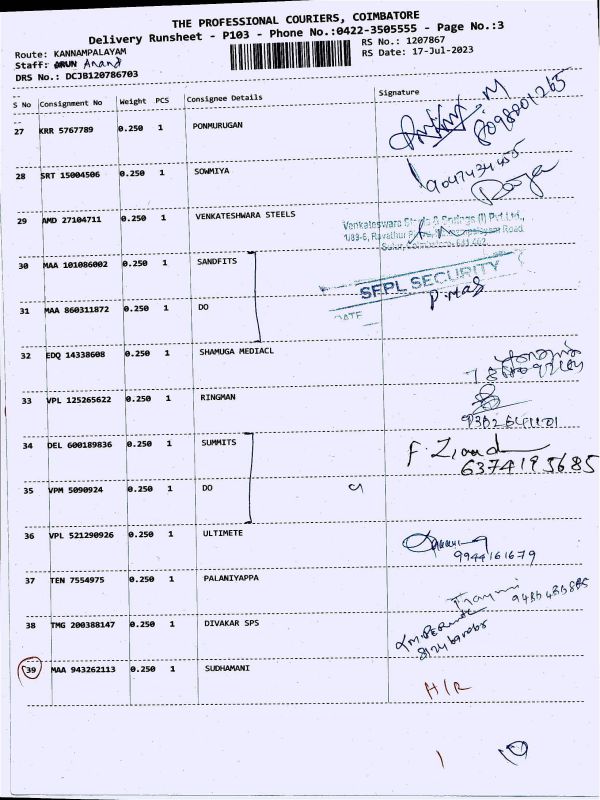 THE PROFESSIONAL COURIERS, COIMBATORE
Delivery Runsheet - P103 - Phone No.:0422-3505555 - Page No.:3
Route: KANNAMPALAYAM
RS No.: 1207867
Staff: ARUN Anand
RS Date: 17-Jul-2023
DRS No.: DCJB120786703
S No Consignment No Weight PCS Consignee Details Signature
27 KRR 5767789 0.250 1 PONMURUGAN
8098001265
28 SRT 15004506 0.250 1 SOWMIYA
9047434455
29 AMD 27104711 0.250 1 VENKATESHWARA STEELS
Venkateswara Steels & Springs (I) Pvt Ltd.,
30 MAA 101086002 0.250 1 SANDFITS
SFPL SECURITY
31 MAA 860311872 0.250 1 DO
DATE
32 EDQ 14338608 0.250 1 SHAMUGA MEDIACL
33 VPL 125265622 0.250 1 RINGMAN
34 DEL 600189836 0.250 1 SUMMITS
F. Ziand
6374195685
35 VPM 5090924 0.250 1 DO
36 VPL 521290926 0.250 1 ULTIMETE
9944161679
37 TEN 7554975 0.250 1 PALANIYAPPA
38 TMG 200388147 0.250 1 DIVAKAR SPS
39 MAA 943262113 0.250 1 SUDHAMANI
H/R